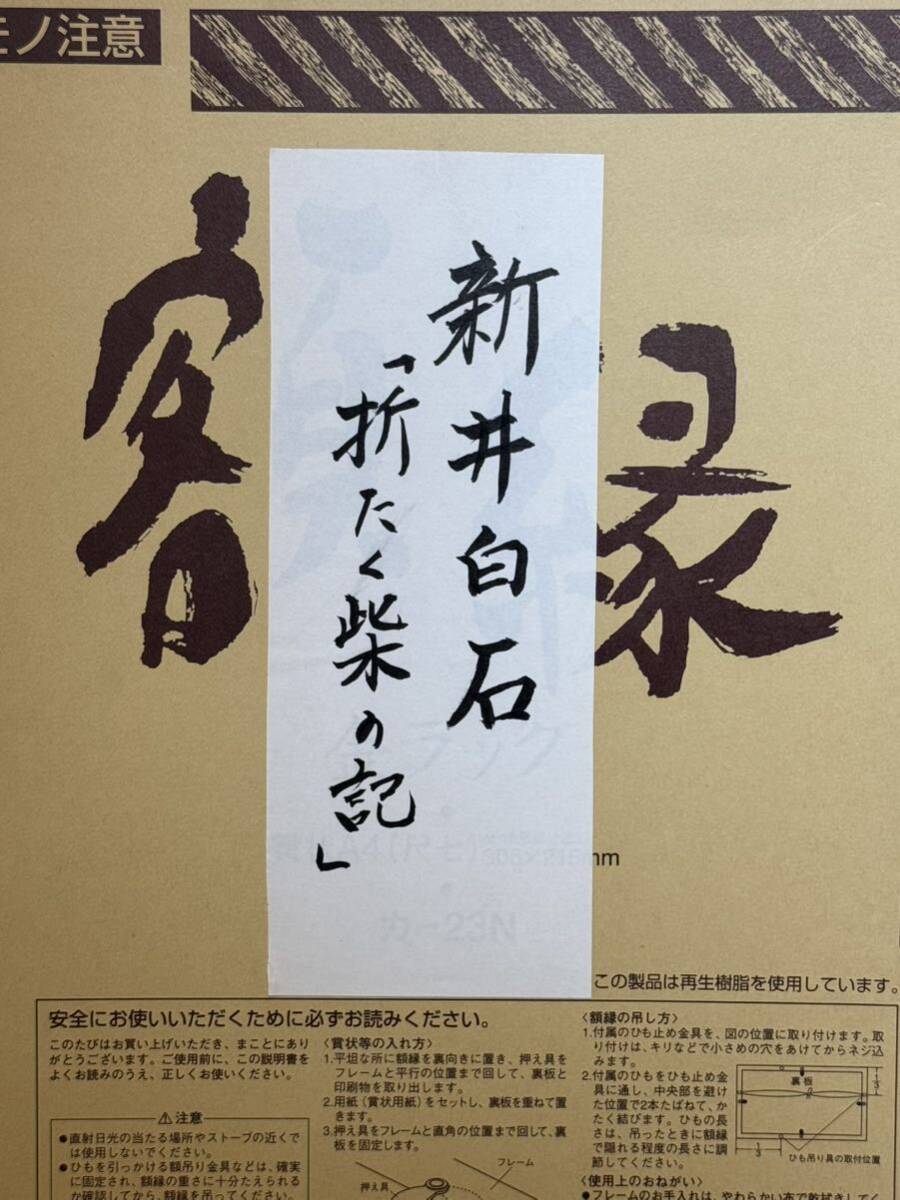 モノ注意
額縁
新井白石
「折たく柴の記」
mm
この製品は再生樹脂を使用しています。
安全にお使いいただくために必ずお読みください。
このたびはお買い上げいただき、まことにあり
がとうございます。ご使用前に、この説明書を
よくお読みのうえ、正しくお使いください。
⚠注意
●直射日光の当たる場所やストーブの近くで
は使用しないでください。
●ひもを引っかける額吊り金具などは、確実
に固定され、額縁の重さに十分たえられる
か確認してから、額縁を吊ってください。
〈賞状等の入れ方〉
1.平坦な所に額縁を裏向きに置き、押え具を
フレームと平行の位置まで回して、裏板と
印刷物を取り出します。
2.用紙(賞状用紙)をセットし、裏板を重ねて置
きます。
3.押え具をフレームと直角の位置まで回して、裏
板を固定します。
フレーム
押え具
〈額縁の吊し方〉
1.付属のひも止め金具を、図の位置に取り付けます。取
り付けは、キリなどで小さめの穴をあけてからネジ込
みます。
2.付属のひもをひも止め金
具に通し、中央部を避け
た位置で2本たばねて、か
たく結びます。ひもの長
さは、吊ったときに額縁
で隠れる程度の長さに調
節してください。
裏板
1/3
1/3
ひも吊り具の取付位置
〈使用上のおねがい〉
●フレームのお手入れは、やわらかい布で乾拭きしてく